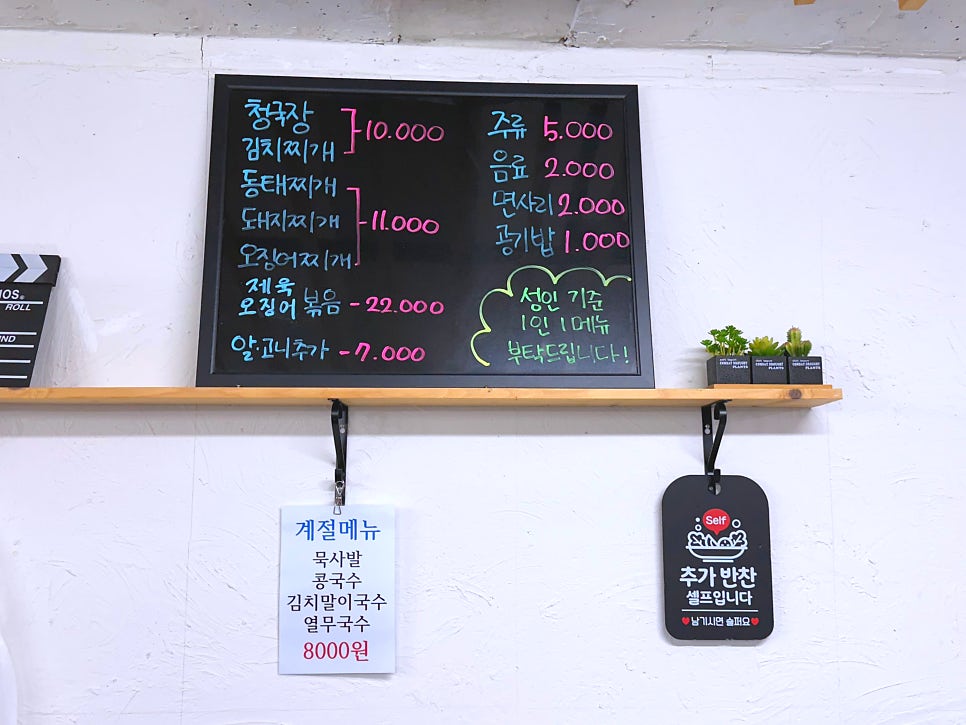 청국장
김치찌개
10.000
동태찌개
돼지찌개
오징어찌개
11.000
제육
오징어 볶음 - 22.000
알.고니추가 - 7.000
주류 5.000
음료 2.000
면사리 2.000
공기밥 1.000
성인 기준
1인 1메뉴
부탁드립니다!
ROLL
계절메뉴
묵사발
콩국수
김치말이국수
열무국수
8000원
Self
추가 반찬
셀프입니다
남기시면 슬퍼요